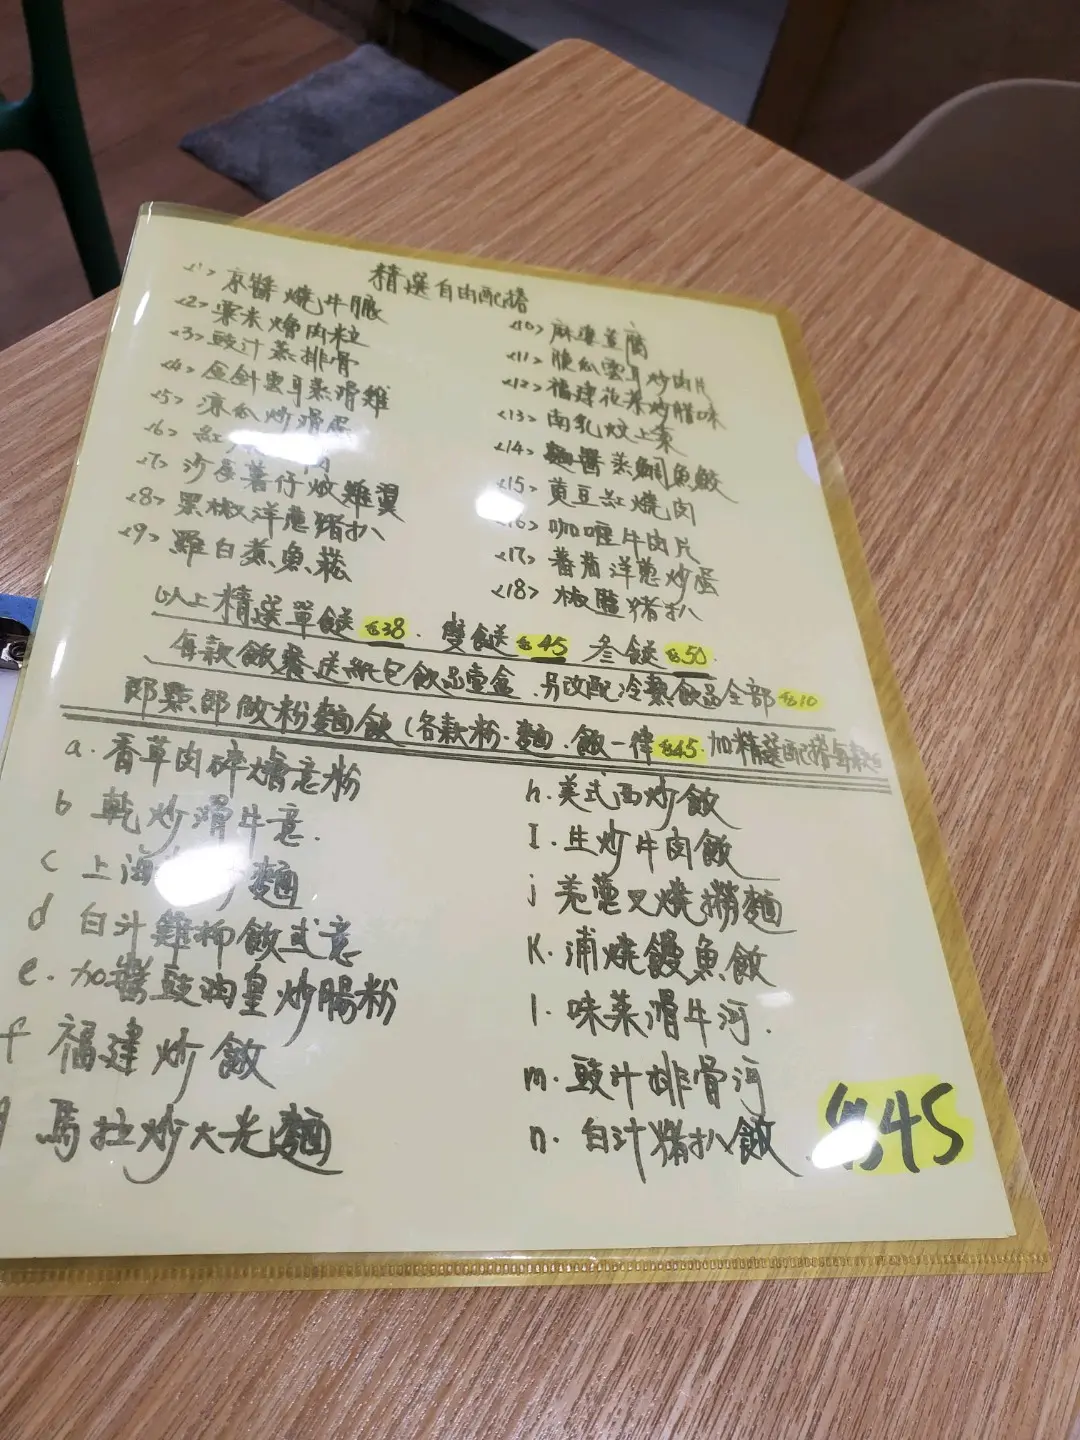 精選自由配搭
<1> 京醬燒牛脹
<2> 粟米燴肉粒
<3> 豉汁蒸排骨
<4> 金針雲耳蒸滑雞
<5> 凉瓜炒滑蛋
<6> 紅 肉
<7> 沙爹薯仔炆雞翼
<8> 黑椒洋蔥猪扒
<9> 羅白煮魚菘
<10> 麻婆荳腐
<11> 脆瓜雲耳炒肉片
<12> 福建花菜炒腊味
<13> 南乳炆上素
<14> 麵醬蒸鯛魚鮫
<15> 黃豆紅燒肉
<16> 咖喱牛肉片
<17> 蕃茄洋蔥炒蛋
<18> 椒鹽猪扒
以上精選單餸 $38. 雙餸 $45 叁餸 $50.
每款飯餐送紙包飲品壹盒 另改配冷熱飲品全部 $10
即點即做粉麵飯(各款粉.麵.飯一律 $45. 加精選配搭每款
a. 香草肉碎燴意粉
b 乾炒滑牛意.
c 上海 炒麵
d 白汁雞柳飯或意
e. 加醬豉油皇炒腸粉
f 福建炒飯
馬拉炒大光麵
h. 美式西炒飯
I. 生炒牛肉飯
j 羌蔥叉燒撈麵
K. 浦燒饅魚飯
l. 味菜滑牛河.
m. 豉汁排骨河
n. 白汁猪扒飯
$45